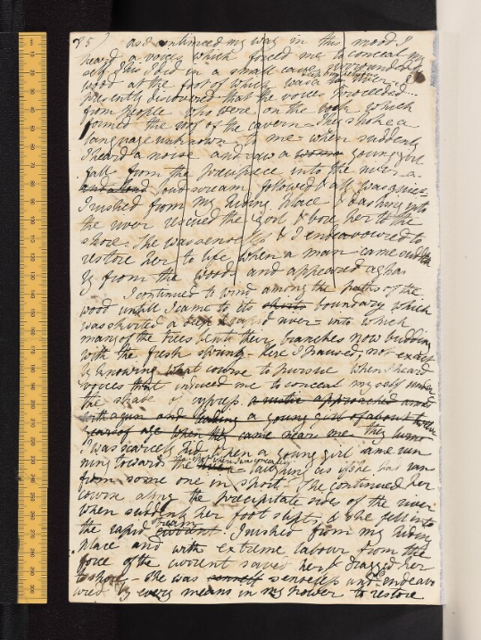 25) and continued my way in this mood I
heard a voice which forced me to conceal my
self. This I did in a small cave surrounded by
wood at the foot of which was a river
presently discovered that the voice proceeded
from people who were on the rock which
formed the roof of the cavern – They spoke a
language unknown to me – when suddenly
I heard a noise and saw a woman young girl
fall from the precipice into the river – a
and a loud loud scream followed & all was quiet
I rushed from my hiding place & dashing into
the river rescued the girl & bore her to the
shore – She was senseless & I endeavoured to
restore her to life when a man came sudden
ly from the wood and appeared
I continued to wind among the paths of the
wood untill I came to its skirts boundary which
was skirted by a deep & rapid river – into which
many of the trees bent their branches now budding
with the fresh spring – here I paused, not exactly
knowing what course to pursue when I heard
voices that induced me to conceal myself under
the shade of a cypress a rustic approached and
with a gun and leading a young girl of about
years of age when they came near me they
I was scarcely hid when a young girl came run
ning towards the
laughing as if she had ran
from some one in sport. She continued her
course along the precipitate sides of the river
when suddenly her foot slipt, & she fell into
the rapid stream current. I rushed from my hiding
place and with extreme labour from the
force of the current saved her & dragged her
to shore – She was senseless and I endeavo
ured by every means in my power to restore